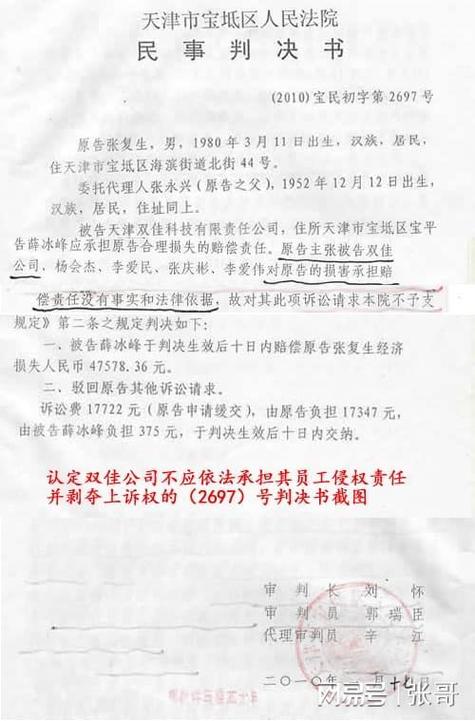 天津市宝坻区人民法院
民事判决书
(2010)宝民初字第2697号
原告张复生，男，1980年3月11日出生，汉族，居民，
住天津市宝坻区海滨街道北街44号。
委托代理人张永兴（原告之父），1952年12月12日出生，
汉族，居民，住址同上。
被告天津双佳科技有限责任公司，住所天津市宝坻区宝平
告薛冰峰应承担原告合理损失的赔偿责任。原告主张被告双佳
公司，杨会杰、李爱民、张庆彬、李爱伟对原告的损害承担赔
偿责任没有事实和法律依据，故对其此项诉讼请求本院不予支
规定》第二条之规定判决如下：
一、被告薛冰峰于判决生效后十日内赔偿原告张复生经济
损失人民币47578.36元。
二、驳回原告其他诉讼请求。
诉讼费17722元（原告申请缓交），由原告负担17347元，
由被告薛冰峰负担375元，于判决生效后十日内交纳。
认定双佳公司不应依法承担其员工侵权责任
并剥夺上诉权的（2697）号判决书截图
审判长 刘怀
审判员 郭瑞臣
代理审判员 辛江
二〇一〇年 月十七日
搜狐号@张哥